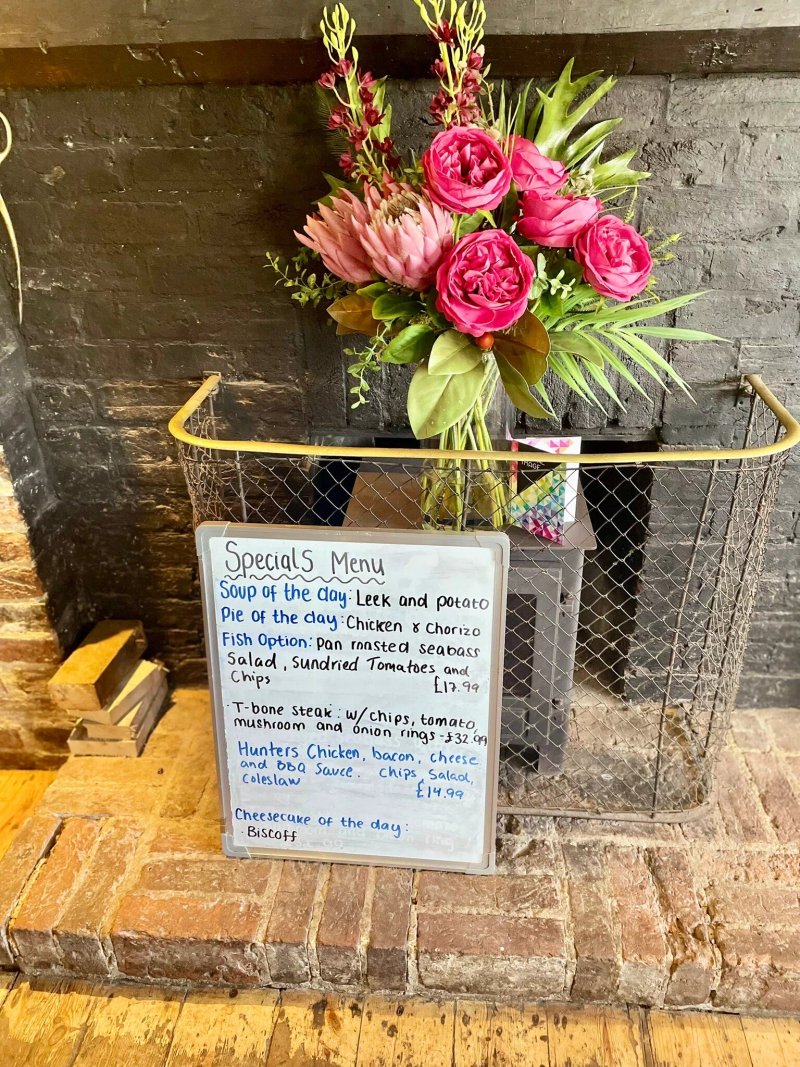 Specials Menu
Soup of the day: Leek and potato
Pie of the day: Chicken & Chorizo
Fish Option: Pan roasted seabass
Salad, Sundried Tomatoes and
Chips £17.99
· T-bone steak: w/chips, tomato,
mushroom and onion rings - £32.99
Hunters Chicken, bacon, cheese
and BBQ Sauce. Chips, Salad,
coleslaw £14.99
Cheesecake of the day:
· Biscoff